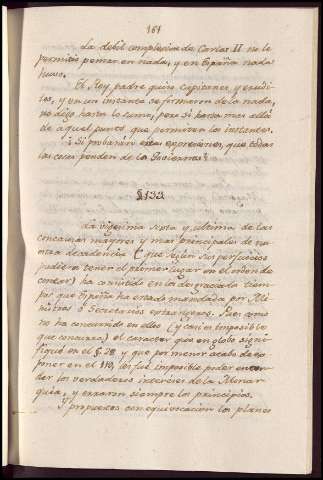 161
La debil complexion de Carlos II no le
permitió pensar en nada, y en España nada
huvo.
El Rey, padre quiso capitanes y erudi-
tos, y en un instante se formaron de la nada,
no digo hasta lo sumo, pero si hasta mas allá
de aquel punto que permiten los instantes.
¿Si probarán estas expresiones, que todas
las cosas penden de los Goviernos?
§ 133
La vigesima sexta y ultima de las
concausas mayores y mas principales de nu-
estra decadencia (que segun sus perjuicios
pudiera tener el primer lugar en el orden de
contar) ha consistido en los desgraciados tiem-
pos que España ha estado mandada por Mi-
nistros ó Secretarios extrangeros. Pues como
no ha concurrido en ellos (y casi es imposible
que concurra) el caracter que en globo signi-
fiqué en el § 28 y que por menor acabo de ex-
poner en el 118, les fué imposible poder enten-
der los verdaderos intereses de la Monar-
quia, y erraron siempre los principios.
Y propuestos con equivocacion los planes